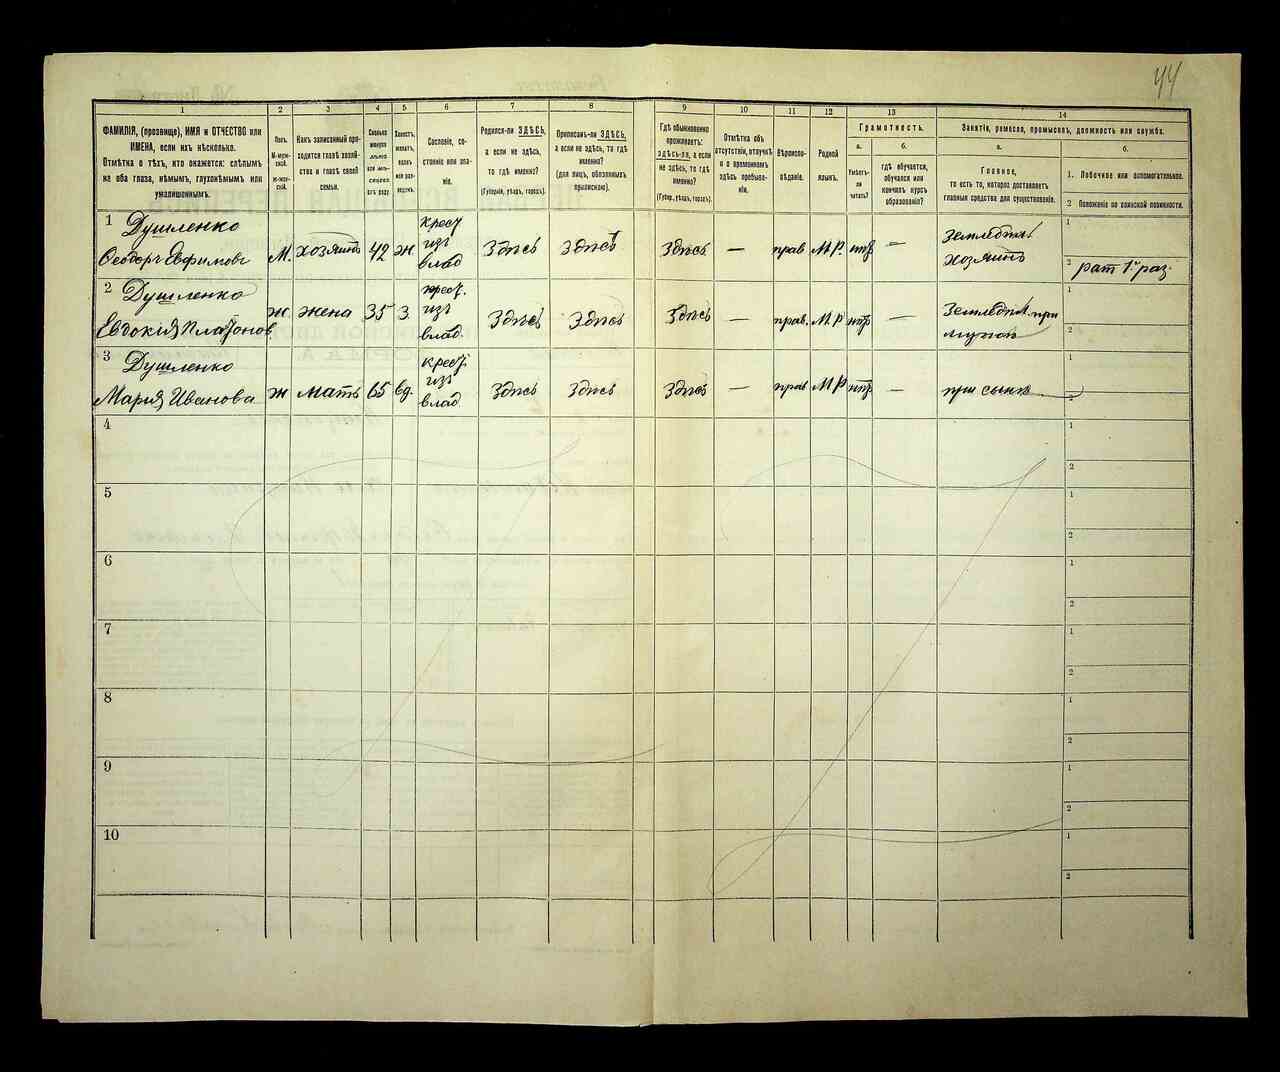 44
1
2
3
4
5
6
7
8
9
10
11
12
13
14
ФАМИЛІЯ, (прозвище), ИМЯ и ОТЧЕСТВО или
ИМЕНА, если ихъ нѣсколько.
Отмѣтка о тѣхъ, кто окажется: слѣпымъ
на оба глаза, нѣмымъ, глухонѣмымъ или
умалишеннымъ.
Полъ.
М-муж-
ской.
ж-жен-
скій.
Какъ записанный при-
ходится главѣ хозяй-
ства и главѣ своей
семьи.
Сколько
минуло
лѣтъ
или мѣ-
сяцевъ
отъ роду
Холостъ,
женатъ,
вдовъ
или раз-
веденъ.
Сословіе, со-
стояніе или зва-
ніе.
Родился-ли ЗДѢСЬ,
а если не здѣсь,
то гдѣ именно?
(Губернія, уѣздъ, городъ).
Приписанъ-ли ЗДѢСЬ,
а если не здѣсь, то гдѣ
именно?
(для лицъ, обязанныхъ
припискою).
Гдѣ обыкновенно
проживаетъ:
здѣсь-ли, а если
не здѣсь, то гдѣ
именно?
(Губер., уѣздъ, городъ).
Отмѣтка объ
отсутствіи, отлучкѣ
и о временномъ
здѣсь пребыва-
ніи.
Вѣроиспо-
вѣданіе.
Родной
языкъ.
Грамотность.
а.
Умѣетъ-
ли
читать?
б.
гдѣ обучается,
обучался или
кончилъ курсъ
образованія?
Занятіе, ремесло, промыселъ, должность или служба.
а.
Главное,
то есть то, которое доставляетъ
главныя средства для существованія.
б.
1. Побочное или вспомогательное.
2 Положеніе по воинской повинности.
1
Душленко
Ѳеодоръ Евфимовъ
М.
хозяинъ
42
ж.
крест
изъ
влад
Здѣсь
Здѣсь
Здѣсь
—
прав
М.Р.
нѣтъ
—
Земледѣл.
хозяинъ
1
2
рат 1го раз.
2
Душленко
Евдокия Платонов
ж.
жена
35
З
крест.
изъ
влад.
Здѣсь
Здѣсь
Здѣсь
—
прав.
М.Р
нѣтъ
—
Земледѣл. при
мужѣ
1
2
3
Душленко
Мария Иванова
ж
мать
65
вд.
крест.
изъ
влад
Здѣсь
Здѣсь
Здѣсь
—
прав
М Р
нѣтъ
—
при сынѣ
1
2
4
1
2
5
1
2
6
1
2
7
1
2
8
1
2
9
1
2
10
1
2